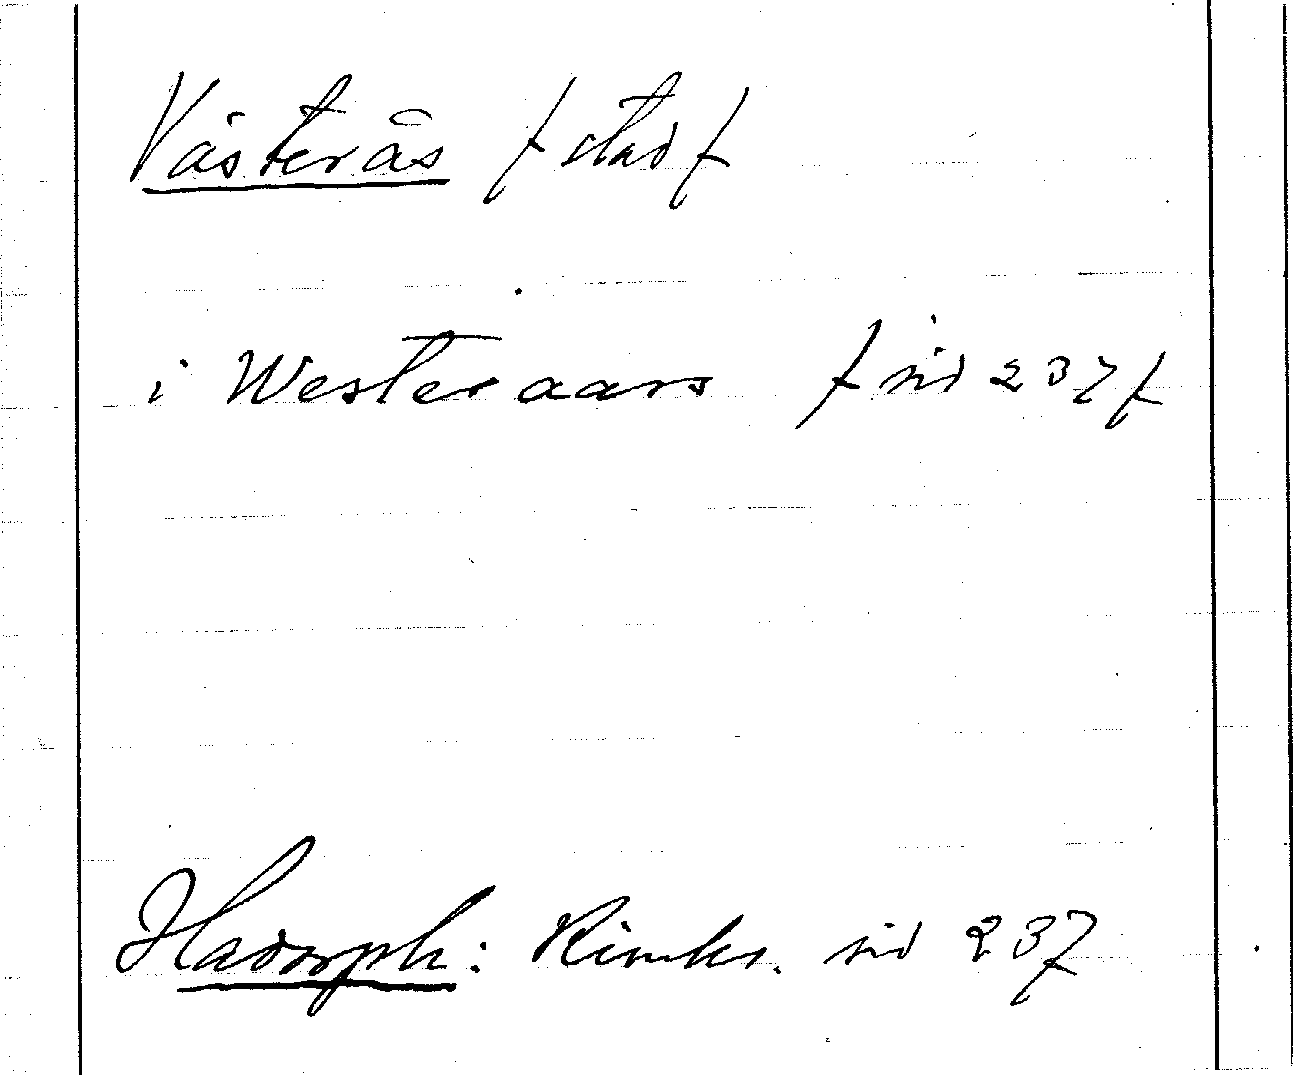 Västerås / stad /
i Westeraars / sid 237 /
Hadorph: Rimkr. sid 237